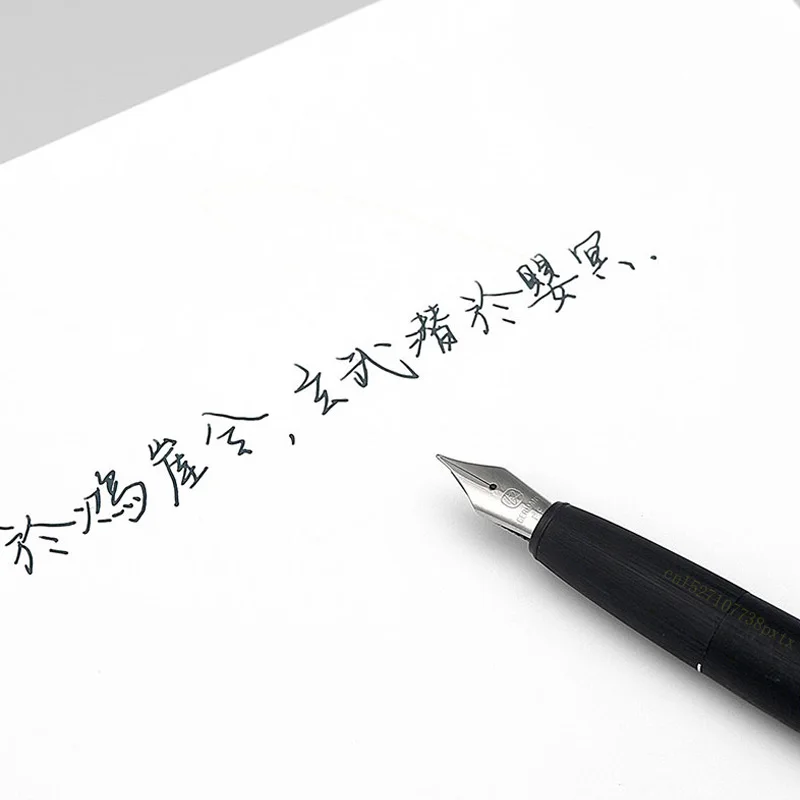 於鴻崖兮,玄武潛於嬰冥.
cn1527107738pxix